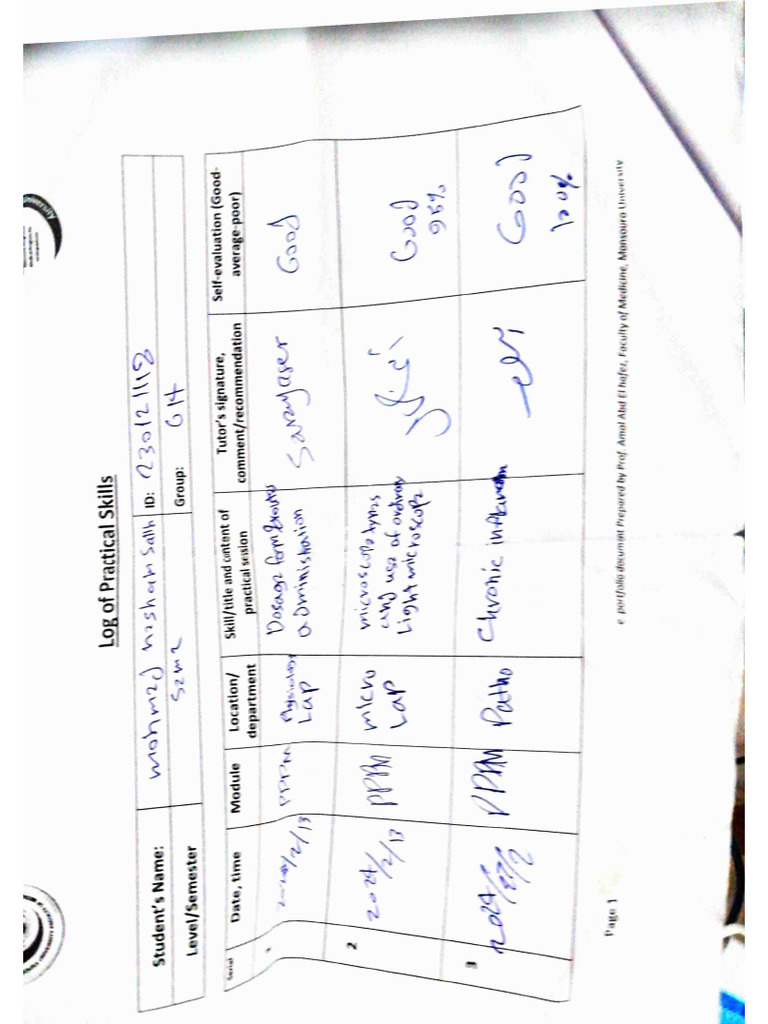 Log of Practical Skills
Student's Name: mohmed hisham Salh ID: 230121118
Level/Semester Sem2 Group: G14
Serial Date, time Module Location/ department Skill/title and content of practical session Tutor's signature, comment/recommendation Self-evaluation (Good-average-poor)
1 2024/2/13 PPPM Physiology Lap Dosage form & routes administration Sarayaser Good
2 2024/2/13 PPPM micro Lap microscope types and use of ordinary Light microscope Good 95%
3 PPPM Patho Chronic Good 100%
Page 1
e-portfolio document Prepared by Prof. Amal Abd El hafez, Faculty of Medicine, Mansoura University